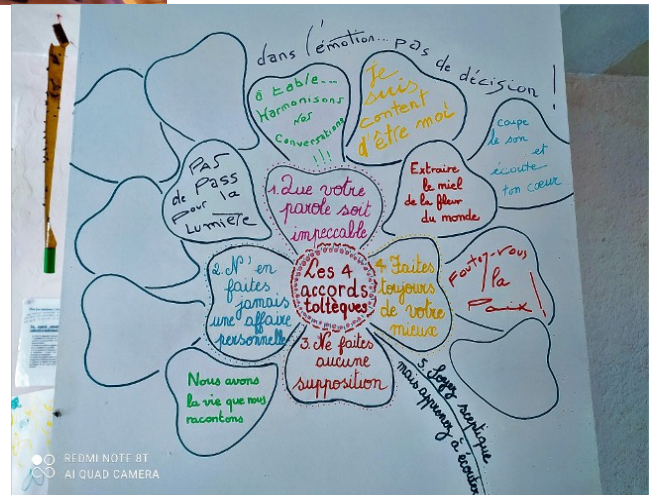 dans l'émotion... pas de décision !
à table...
Harmonisons
Nos
Conversations
!!!
Je
suis
content
d'être moi
coupe
le son
et
écoute
ton cœur
PAS
de Pass
pour la
Lumière
1. Que votre
parole soit
impeccable
Extraire
le miel
de la fleur
du monde
2. N'en
faites
jamais
une affaire
personnelle
Les 4
accords
toltèques
4. Faites
toujours
de votre
mieux
Foutez-vous
la
Paix !
3. Ne faites
aucune
supposition
Nous avons
la vie que nous
racontons
5. Soyez sceptique
mais apprenez à écouter
REDMI NOTE 8T
AI QUAD CAMERA